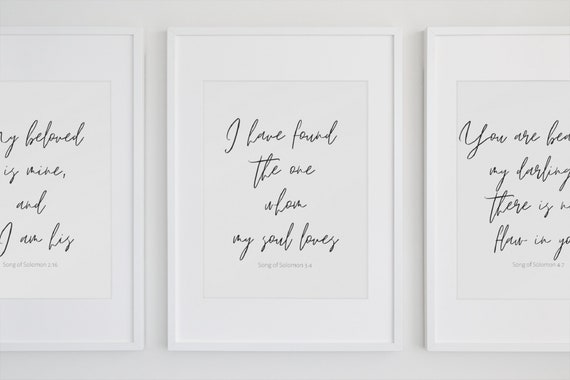 My beloved
is mine,
and
I am his
Song of Solomon 2:16
I have found
the one
whom
my soul loves
Song of Solomon 3:4
You are bea
my darling
there is n
flaw in yo
Song of Solomon 4:7